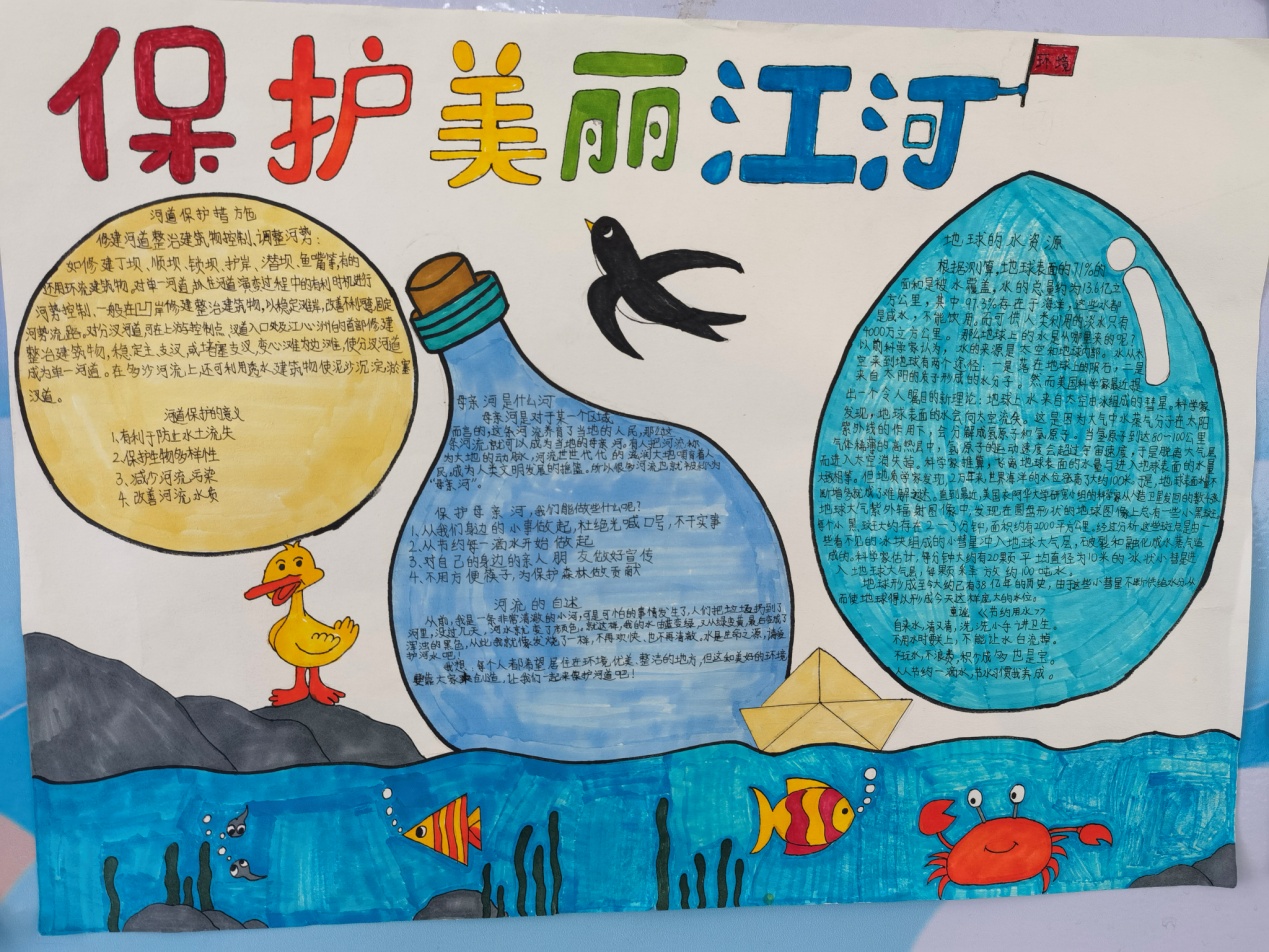 保护美丽江河
环境
河道保护措施
修建河道整治建筑物控制、调整河势:
如修建丁坝、顺坝、锁坝、护岸、潜坝、鱼嘴等,有的
还用环流建筑物。对单一河道,抓住河道演变过程中的有利时机进行
河势控制、一般在凹岸修建整治建筑物,以稳定滩岸,改善不利弯,固定
河势流路。对分汊河道,可在上游控制点、汊道入口处及江心洲的首部修建
整治建筑物,稳定主、支汊,或堵塞支汊,变心滩为边滩,使分汊河道
成为单一河道。在多沙河流上,还可利用透水建筑物使泥沙沉淀,淤塞
汊道。
河道保护的意义
1.有利于防止水土流失
2.保护生物多样性
3.减少河流污染
4.改善河流水质
母亲河是什么河
母亲河是对于某一个区域
而言的,这条河流养育了当地的人民,那么这
条河流,就可以成为当地的母亲河。有人把河流称
为大地的动脉,河流世世代代的滋润大地哺育着人
民,成为人类文明发展的摇篮。所以很多河流也就被称为
"母亲河"。
保护母亲河,我们能做些什么呢?
1.从我们身边的小事做起,杜绝光喊口号,不干实事
2.从节约每一滴水开始做起
3.对自己的身边的亲人朋友做好宣传
4.不用方便筷子,为保护森林做贡献
河流的自述
从前,我是一条非常清澈的小河,可是可怕的事情发生了,人们把垃圾扔到了
河里,没过几天,河水就变了颜色。就这样,我的水由蓝变绿,又从绿变黄,最后变成了
浑浊的黑色,从此我就像发烧了一样,不再欢快,也不再清澈,水是生命之源,请爱
护河水吧!
我想,每个人都希望居住在环境优美、整洁的地方,但这和美好的环境
要靠大家来创造,让我们一起来保护河道吧!
地球的水资源
根据测算,地球表面的71%的
面积是被水覆盖,水的总量约为13.6亿立
方公里,其中97.3%存在于海洋,这些水都
是咸水,不能饮用,而可供人类利用的淡水只有
4000万立方公里。那么地球上的水是从哪里来的呢?
以前科学家认为,水的来源是太空和地球内部。水从太
空来到地球有两个途径:一是落在地球上的陨石,二是
来自太阳的质子形成的水分子。然而美国科学家最近提
出一个令人瞩目的新理论:地球上水来自太空由冰组成的彗星。科学家
发现,地球表面的水会向太空流失。这是因为大气中水蒸气分子在太阳
紫外线的作用下,会分解成氢原子和氧原子。当氢原子到达80—100公里
气体稀薄的高热层中,氢原子的运动速度会超过宇宙速度,于是脱离大气层
而进入太空消失掉。科学家推算,飞离地球表面的水量与进入地球表面的水量
大致相等。但地质学家发现,2万年来,世界海洋的水位涨高了大约100米。于是,地球表面水量不
断增多就成了难解之谜。直到最近,美国衣阿华大学研究小组的科学家从人造卫星发回的数千张
地球大气紫外辐射图像中,发现在圆盘形状的地球图像上总有一些小黑斑。
每个小黑斑大约存在2—3分钟,面积约有2000平方公里。经过分析,这些斑点是由一
些看不见的冰块组成的小彗星冲入地球大气层,破裂和融化成水蒸气造
成的。科学家估计,每分钟大约有20颗平均直径为10米的冰状小彗星进
入地球大气层,每颗释放约100吨水,
地球形成至今大约已有38亿年的历史,由于这些小彗星不断供给水分从
而使地球得以形成今天这样庞大的水位。
童谣《节约用水》
自来水,清又清,洗洗小手讲卫生。
不用水时要关上,不能让水白流掉。
不玩水,不浪费,积少成多也是宝。
人人节约一滴水,节水习惯我养成。